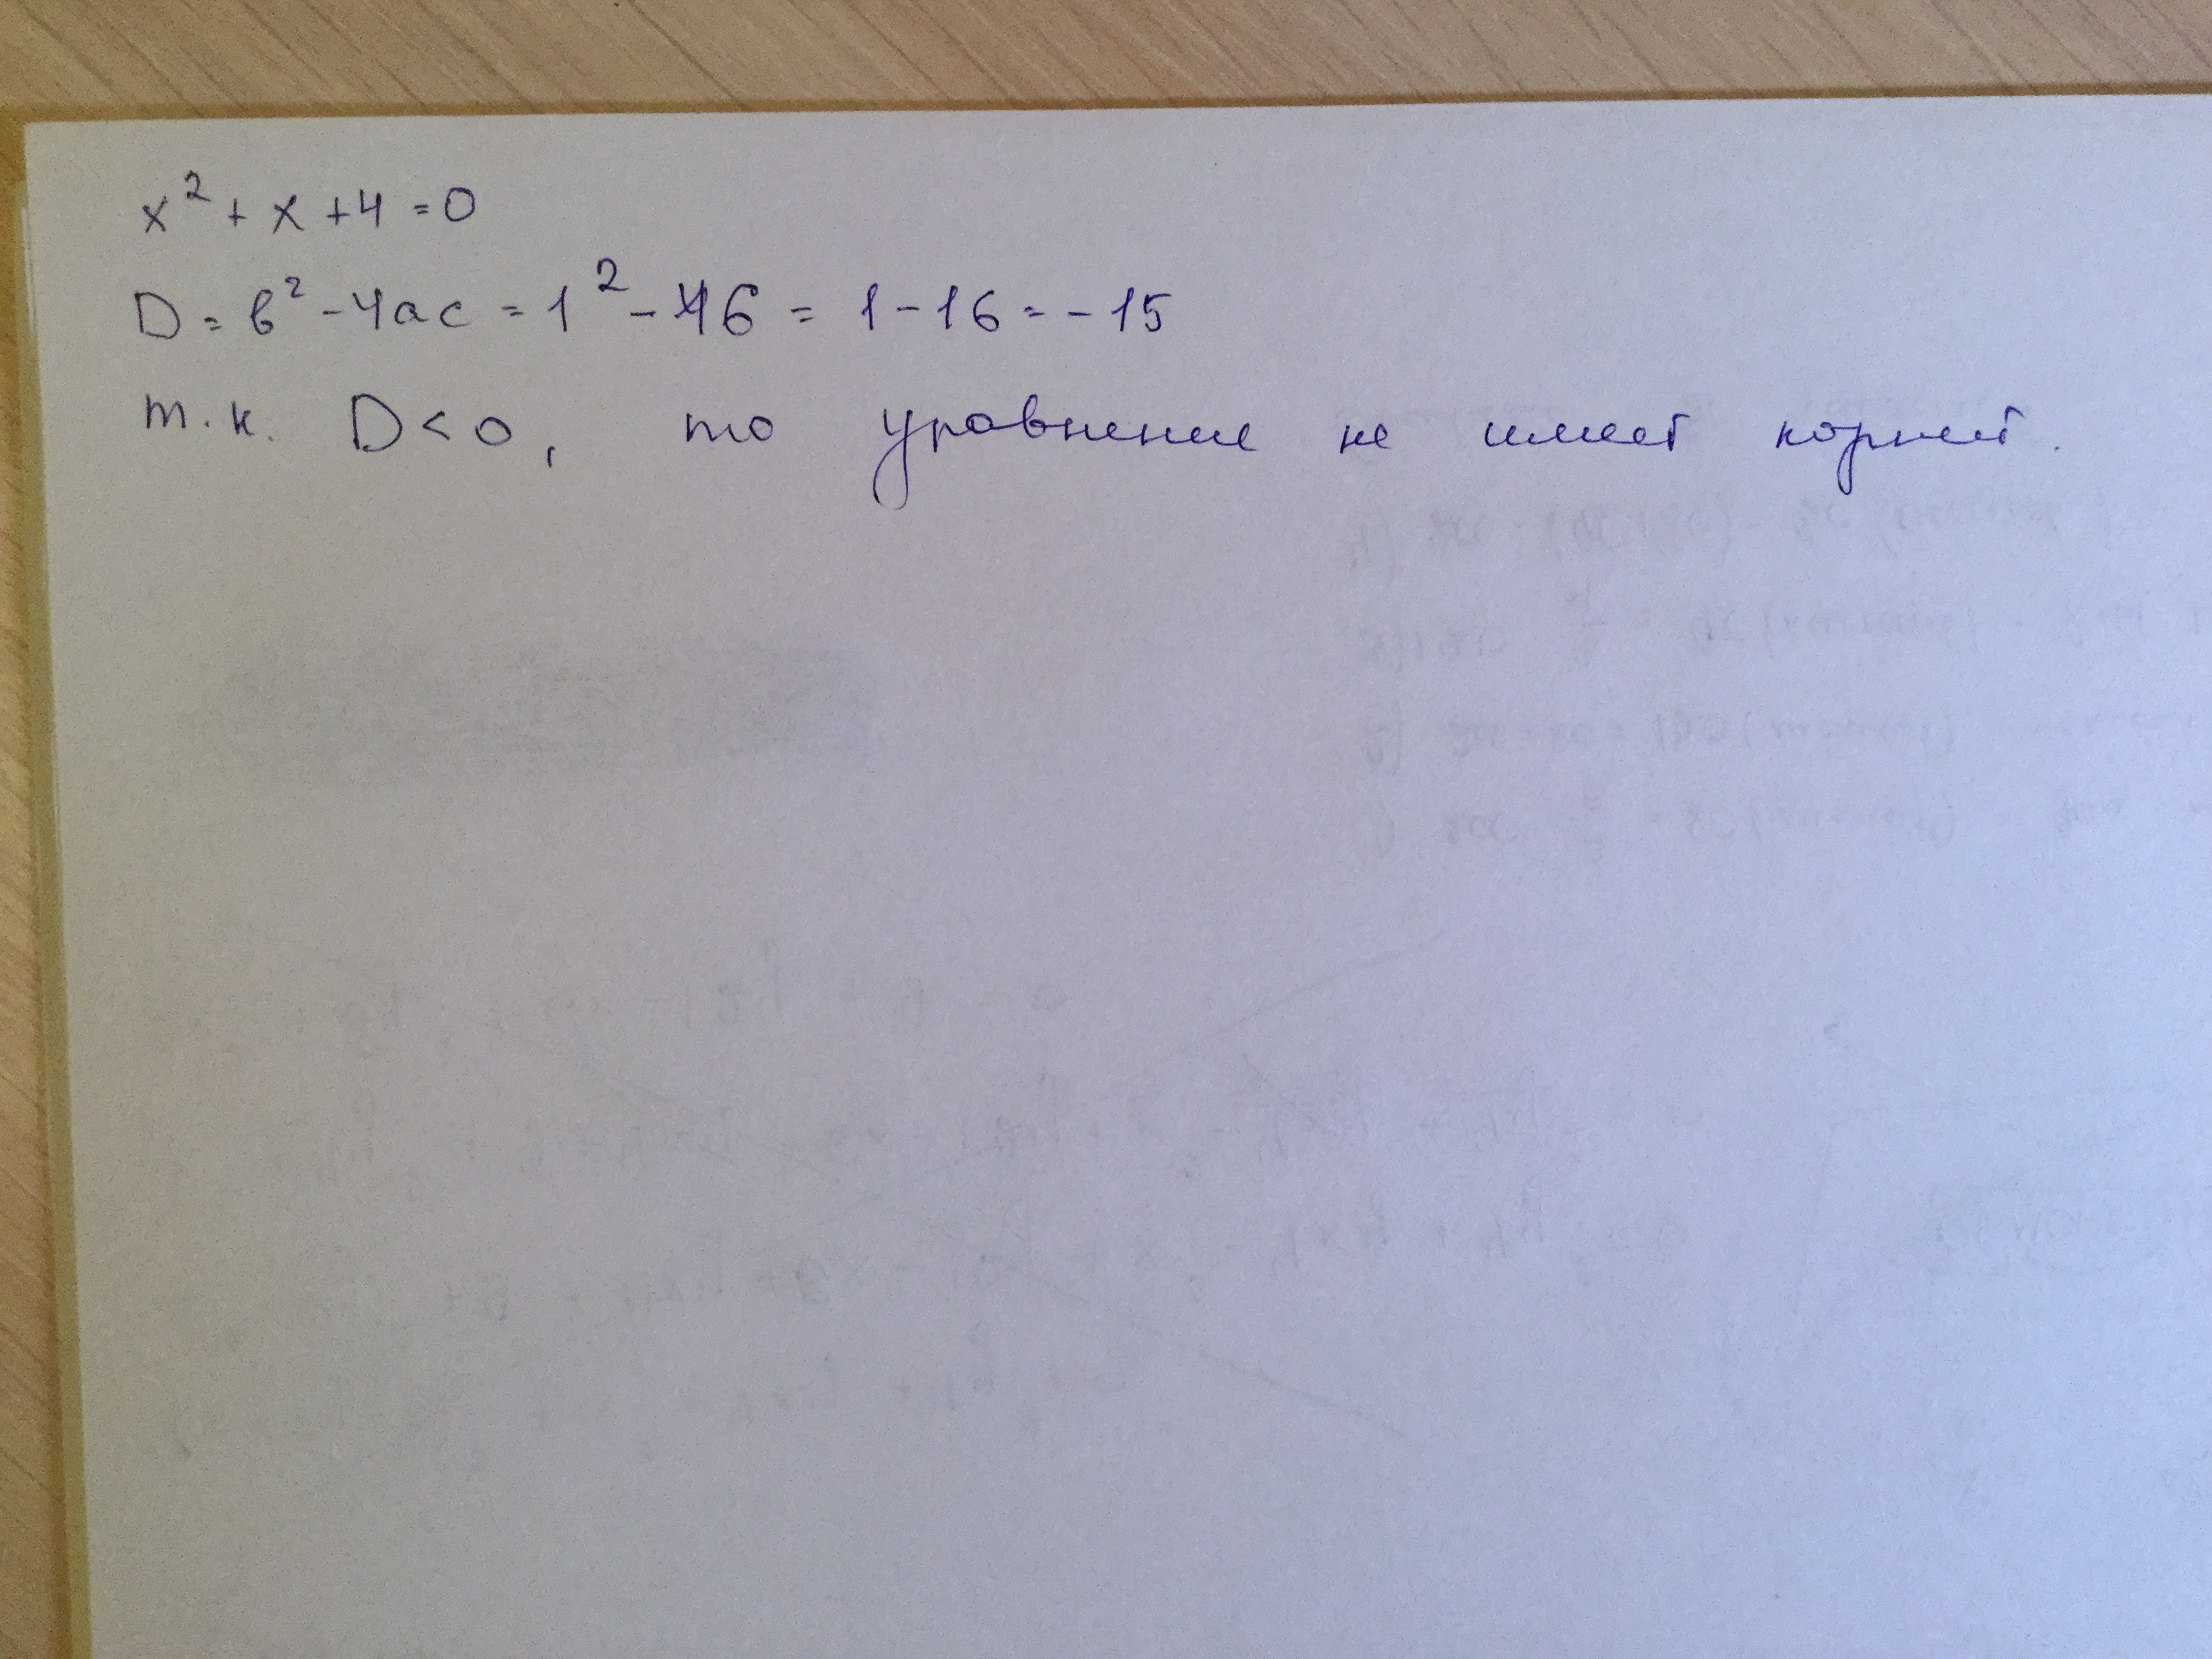 x² + x + 4 = 0
D = b² - 4ac = 1² - 16 = 1 - 16 = -15
т.к. D < 0, то уравнение не имеет корней.